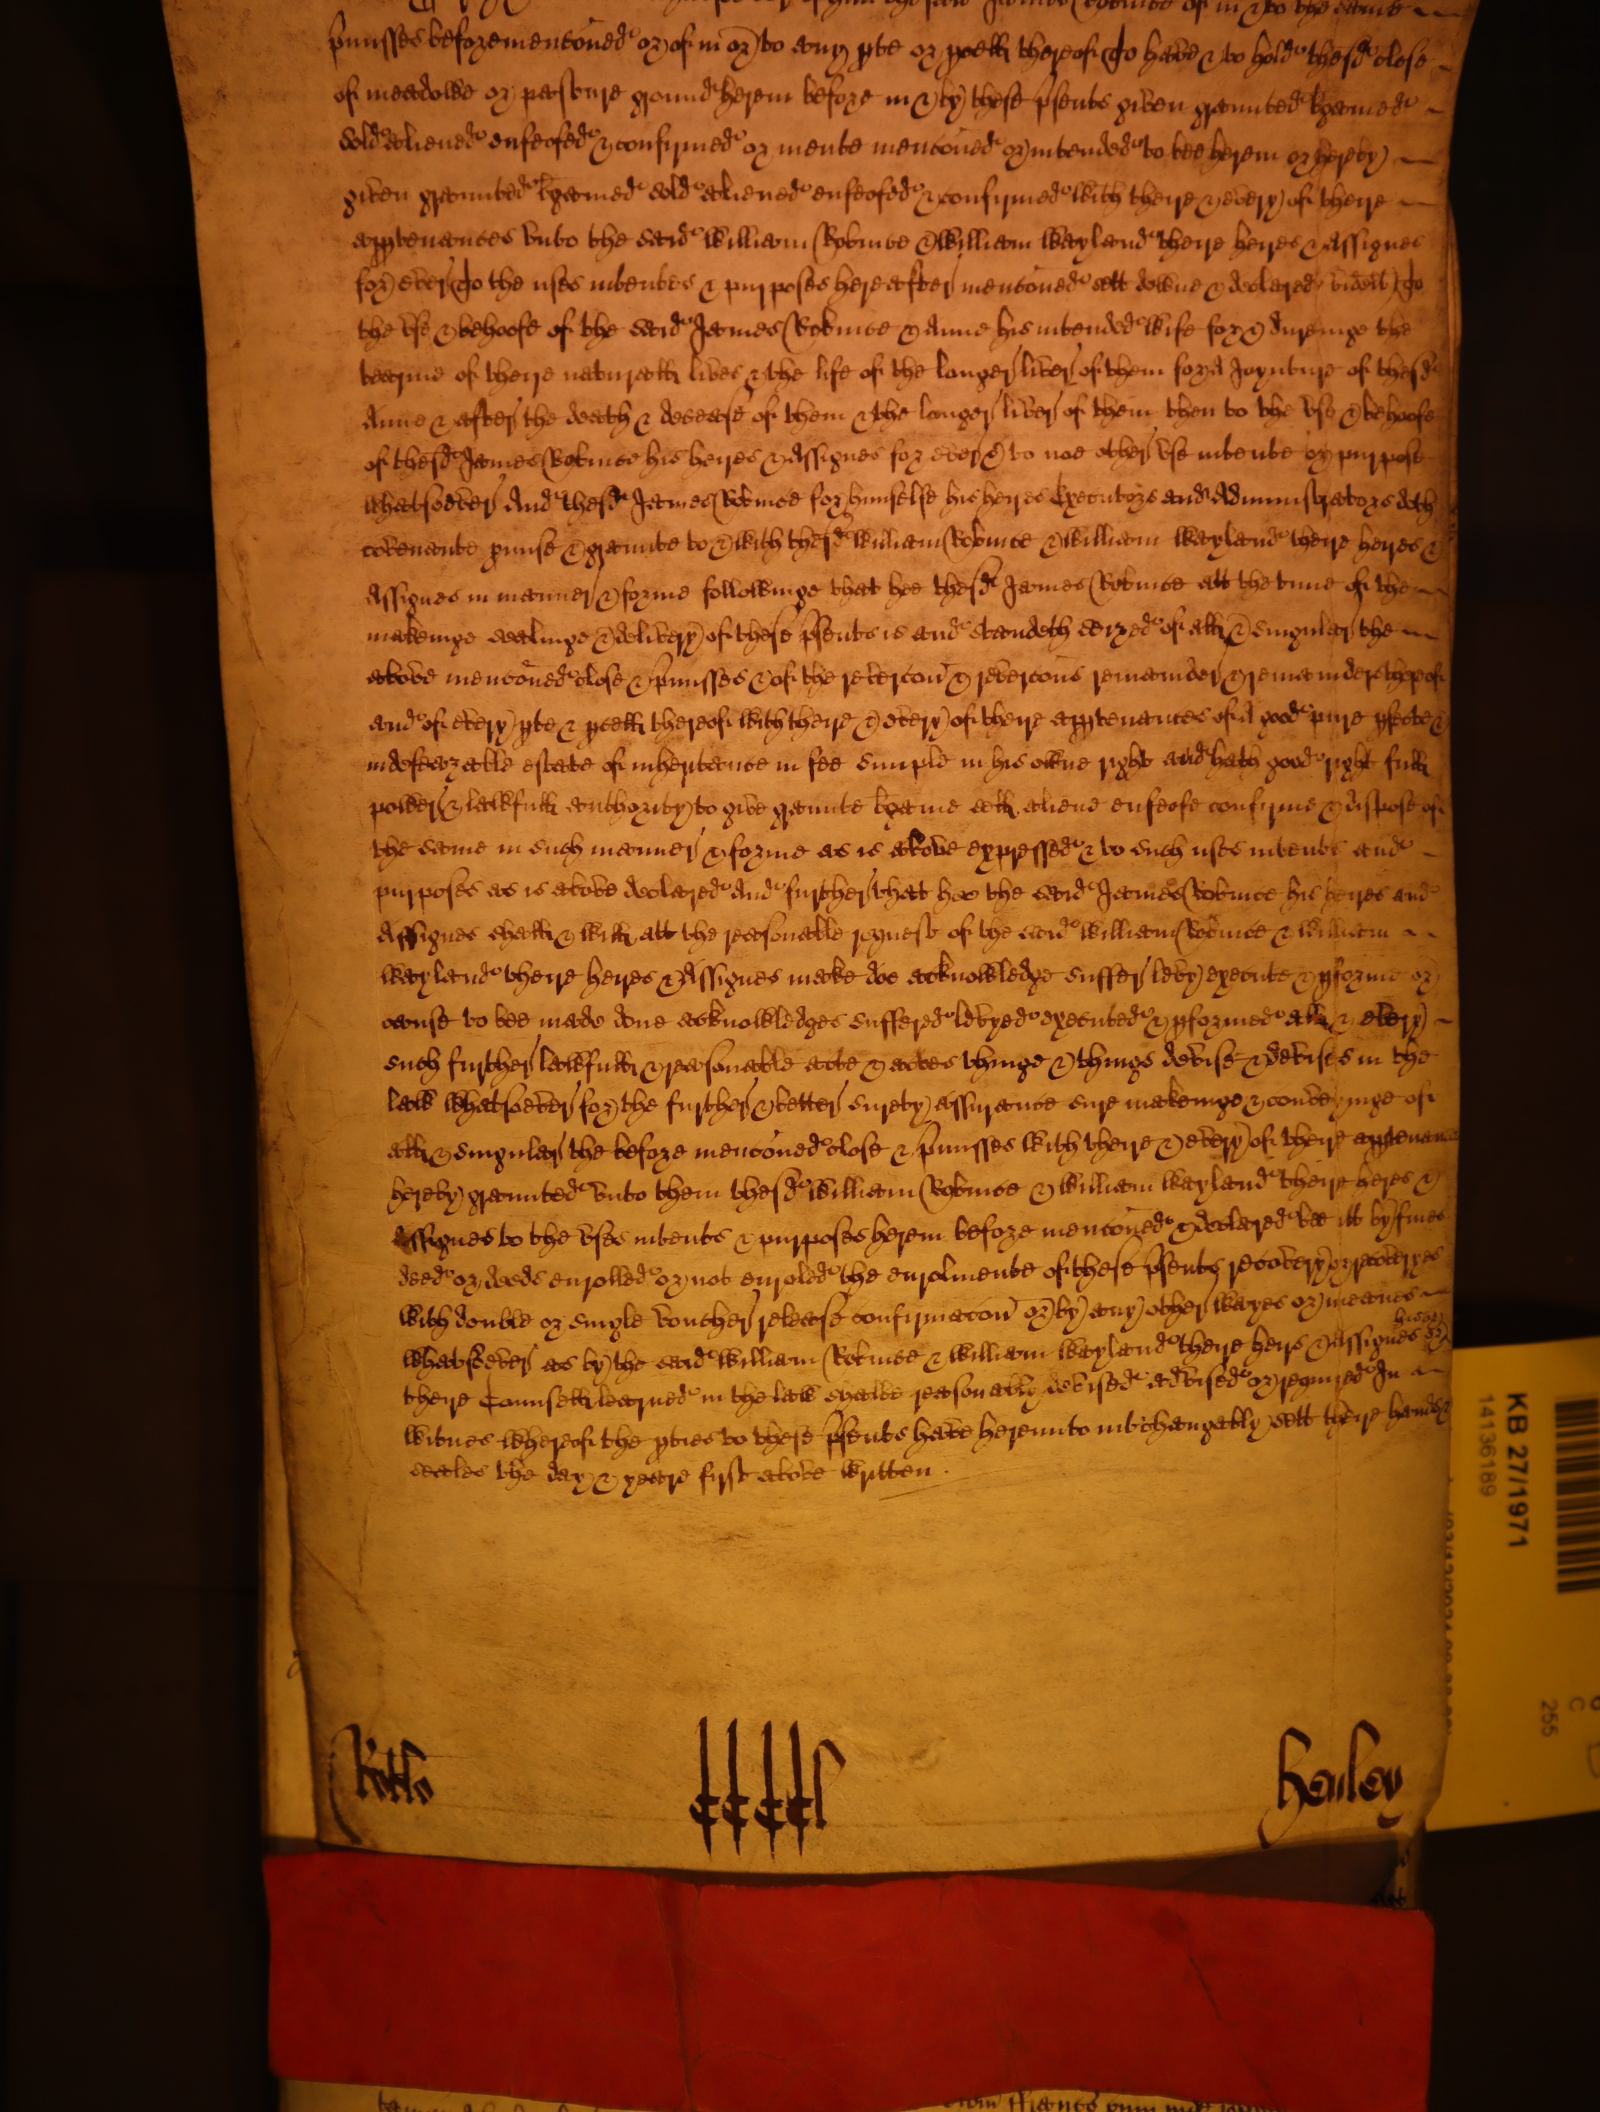 of in & to the same
pmisses beforemenconed or of in or to any pte or pcell thereof To have & to hold thesd close
of meadowe or pasture ground herein before in & by these psents given graunted bgained
sold aliened enfeofed & confirmed or mente menconed or intended to bee herein or hereby
given graunted bgained sold aliened enfeofed & confirmed with theire & every of theire
apptenances unto the said William Robince & William Wayland theire heires & Assignes
for ever To the uses intentes & purposes hereafter menconed sett downe & declared vidett To
the use & behoofe of the said James Robince & Anne his intended wife for & dureinge the
tearme of theire naturall lives & the life of the longer liver of them for A Joynture of thesd
Anne & after the death & decease of them & the longer liver of them then to the use & behoofe
of thesd James Robince his heires & Assignes for ever & to noe other use intente or purpose
whatsoever And thesd James Robince for himselfe his heires Executors and Administrators doth
covenante pmise & graunte to & with thesd William Robince & William Wayland theire heires &
Assignes in manner & forme followinge that hee thesd James Robince att the time of the
makeinge sealinge & delivery of these psents is and standeth seized of all & singular the
above menconed close & pmisses & of the revercon & revercons remainder & remainders thereof
and of every pte & pcell thereof with theire & every of theire apptenances of A good pure pfecte &
indefeazable estate of inheritance in fee simple in his owne right and hath good right full
power & lawfull authority to give graunte bgaine sell aliene enfeofe confirme & dispose of
the same in such manner & forme as is above expressed & to such uses intents and
purposes as is above declared And further that hee the said James Robince his heires and
Assignes shall & will att the reasonable request of the said William Robince & William
Wayland theire heires & Assignes make doe acknowledge suffer levy execute & pforme or
cause to bee made done acknowledges suffered levyed executed & pformed all & every
such further lawfull & reasonable acte & actes thinge & things devise & devises in the
law whatsoever for the further & better surety assurance sure makeinge & conveyinge of
all & singular the before menconed close & pmisses with theire & every of theire apptenan
hereby graunted unto them thesd William Robince & William Wayland theire heires &
Assignes to the uses intents & purposes herein before menconed & declared bee itt by fines
deed or deeds enrolled or not enroled the enrolmente of these psents recovery or recoveryes
with double or single voucher release confirmacon or by any other wayes or meanes
whatsoever as by the said William Robince & William Wayland theire heirs & Assignes his or
theire Counsell learned in the law shalbe reasonably devised advised or required In
witnes whereof the pties to these psents have hereunto interchangably sett theire hands &
seales the day & yeare first above written .
Rotlo ccccl Henley
KB 27/1971
14136189
255